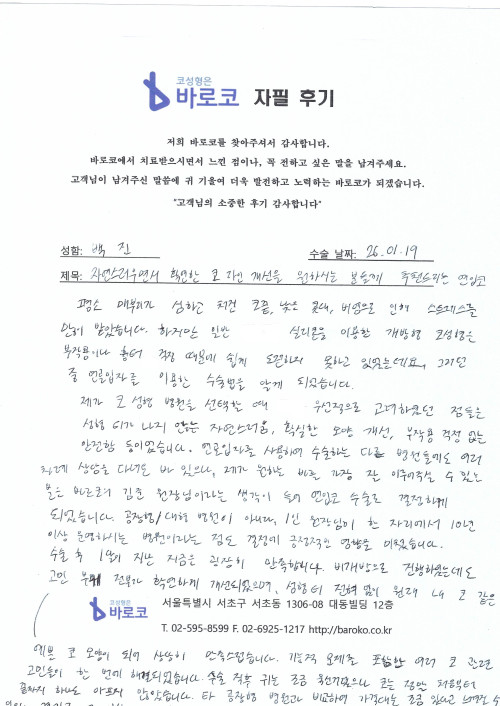 코성형은
바로코 자필 후기
저희 바로코를 찾아주셔서 감사합니다.
바로코에서 치료받으시면서 느낀 점이나, 꼭 전하고 싶은 말을 남겨주세요.
고객님이 남겨주신 말씀에 귀 기울여 더욱 발전하고 노력하는 바로코가 되겠습니다.
"고객님의 소중한 후기 감사합니다"
성함: 백 진 수술 날짜: 26.01.19
제목: 자연스러우면서 확연한 코 라인 개선을 원하시는 분들께 추천드리는 연입코
평소 매부리가 심하고 처진 코끝, 낮은 콧대, 비염으로 인해 스트레스를
많이 받았습니다. 하지만 일반 실리콘을 이용한 개방형 코성형은
부작용이나 흉터 걱정 때문에 쉽게 도전하지 못하고 있었는데요, 그러던
중 연골입자를 이용한 수술법을 알게 되었습니다.
제가 코 성형 병원을 선택할 때 우선적으로 고려하였던 점들은
성형 티가 나지 않는 자연스러움, 확실한 모양 개선, 부작용 걱정 없는
안전함 등이었습니다. 연골입자를 사용하여 수술하는 다른 병원들에도 여러
차례 상담을 다녀도 봤었으나, 제가 원하는 바를 가장 잘 이루어주실 수 있는
분은 바로코의 김준 원장님이라는 생각이 들어 연입코 수술로 결정하게
되었습니다. 공장형/대형 병원이 아니라, 1인 원장님이 한 자리에서 10년
이상 운영하시는 병원이라는 점도 결정에 긍정적인 영향을 미쳤습니다.
수술 후 1일이 지난 지금은 굉장히 만족합니다. 비개방으로 진행하였는데도
고민 부위 전부가 확연하게 개선되었으며, 성형 티 전혀 없이 원래 내 코 같은
코성형은
바로코
서울특별시 서초구 서초동 1306-08 대동빌딩 12층
T. 02-595-8599 F. 02-6925-1217 http://baroko.co.kr
예쁜 코 모양이 되어 상당히 만족스럽습니다. 기능적 문제를 포함한 여러 코 관련
고민들이 한 번에 해결되었습니다. 수술 직후 귀는 조금 욱신거렸으나 코는 정말 처음부터
끝까지 하나도 아프지 않았습니다. 타 공장형 병원과 비교하여 가격대는 조금 있다고 느껴질 수